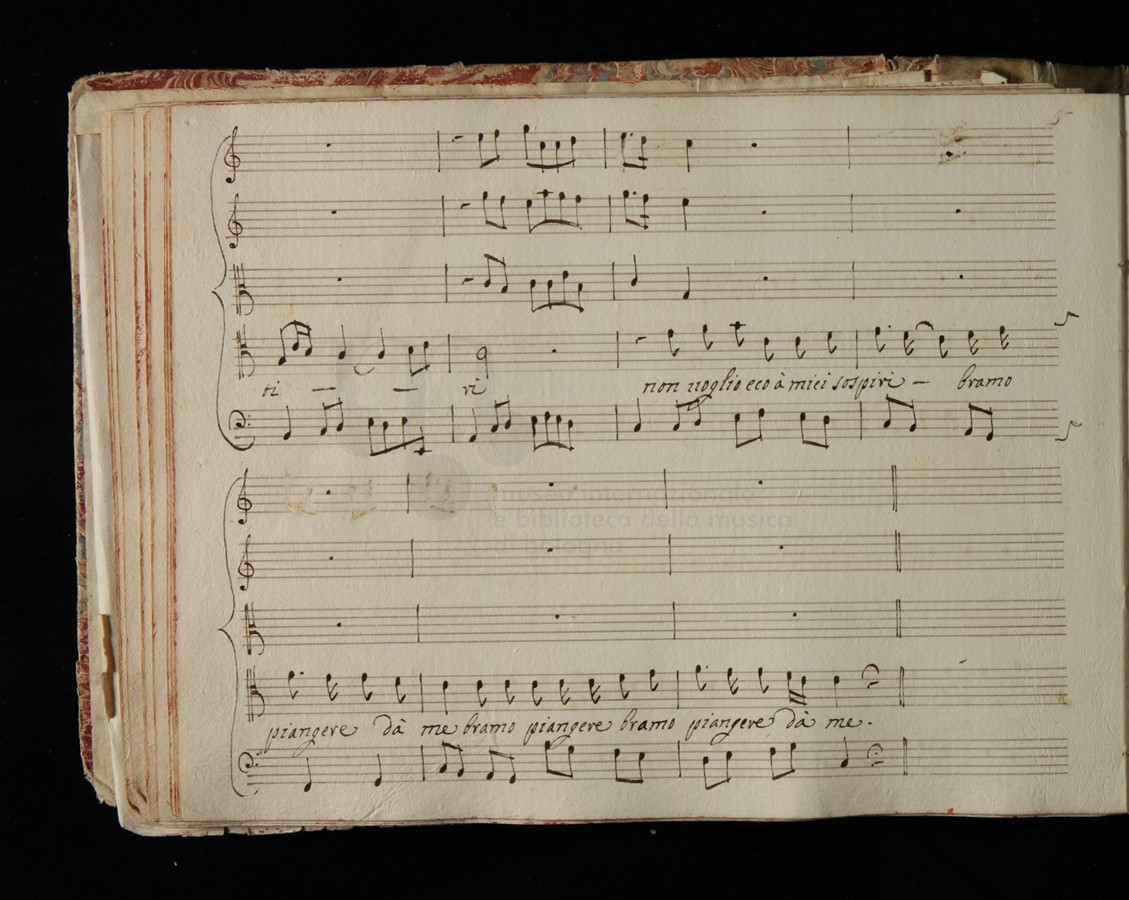 ti — — ri non uoglio eco à miei sospiri — bramo
museo internazionale
e biblioteca della musica
di bologna
piangere dà me bramo piangere bramo piangere dà me.